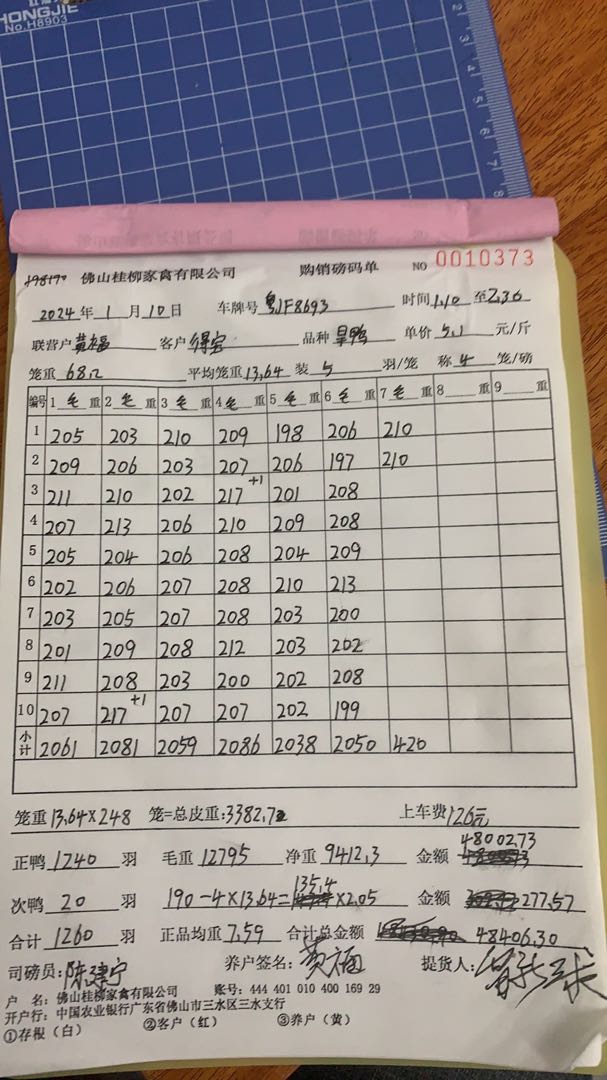 HONGJIE
No.H8903
佛山桂柳家禽有限公司 购销磅码单 NO 0010373
2024年1月10日 车牌号 粤JF8693 时间1.10至2.30
联营户 黄福 客户 得宝 品种 旱鸭 单价 5.1 元/斤
笼重 68.2 平均笼重 13.64 装 5 羽/笼 称 4 笼/磅
编号 1毛重 2毛重 3毛重 4毛重 5毛重 6毛重 7毛重 8 重 9 重
1 205 203 210 209 198 206 210
2 209 206 203 207 206 197 210
3 211 210 202 217+1 201 208
4 207 213 206 210 209 208
5 205 204 206 208 204 209
6 202 206 207 208 210 213
7 203 205 207 208 203 200
8 201 209 208 212 203 202
9 211 208 203 200 202 208
10 207 217+1 207 207 202 199
小计 2061 2081 2059 2086 2038 2050 420
笼重 13.64×248 笼=总皮重:3382.72 上车费 126元
正鸭 1240 羽 毛重 12795 净重 9412.3 金额 48002.73
次鸭 20 羽 190-4×13.64=135.4×2.05 金额 277.57
合计 1260 羽 正品均重 7.59 合计总金额 48406.30
司磅员: 陈建宁 养户签名: 黄福 提货人:
户 名: 佛山桂柳家禽有限公司 账号: 444 401 010 400 169 29
开户行: 中国农业银行广东省佛山市三水区三水支行
①存根(白) ②客户(红) ③养户(黄)